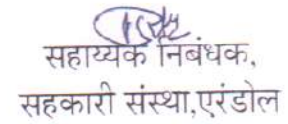 सहाय्यक निबंधक,
सहकारी संस्था,एरंडोल